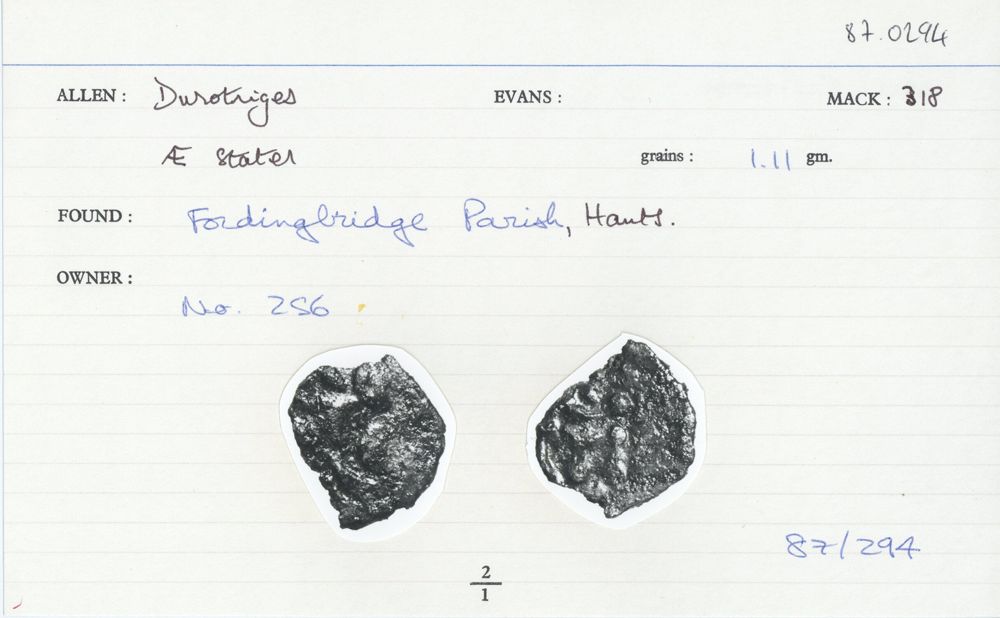 87.0294
ALLEN : Durotriges EVANS : MACK : 318
Æ Stater grains : 1.11 gm.
FOUND : Fordingbridge Parish, Hants.
OWNER :
No. 256
87/294
2
1